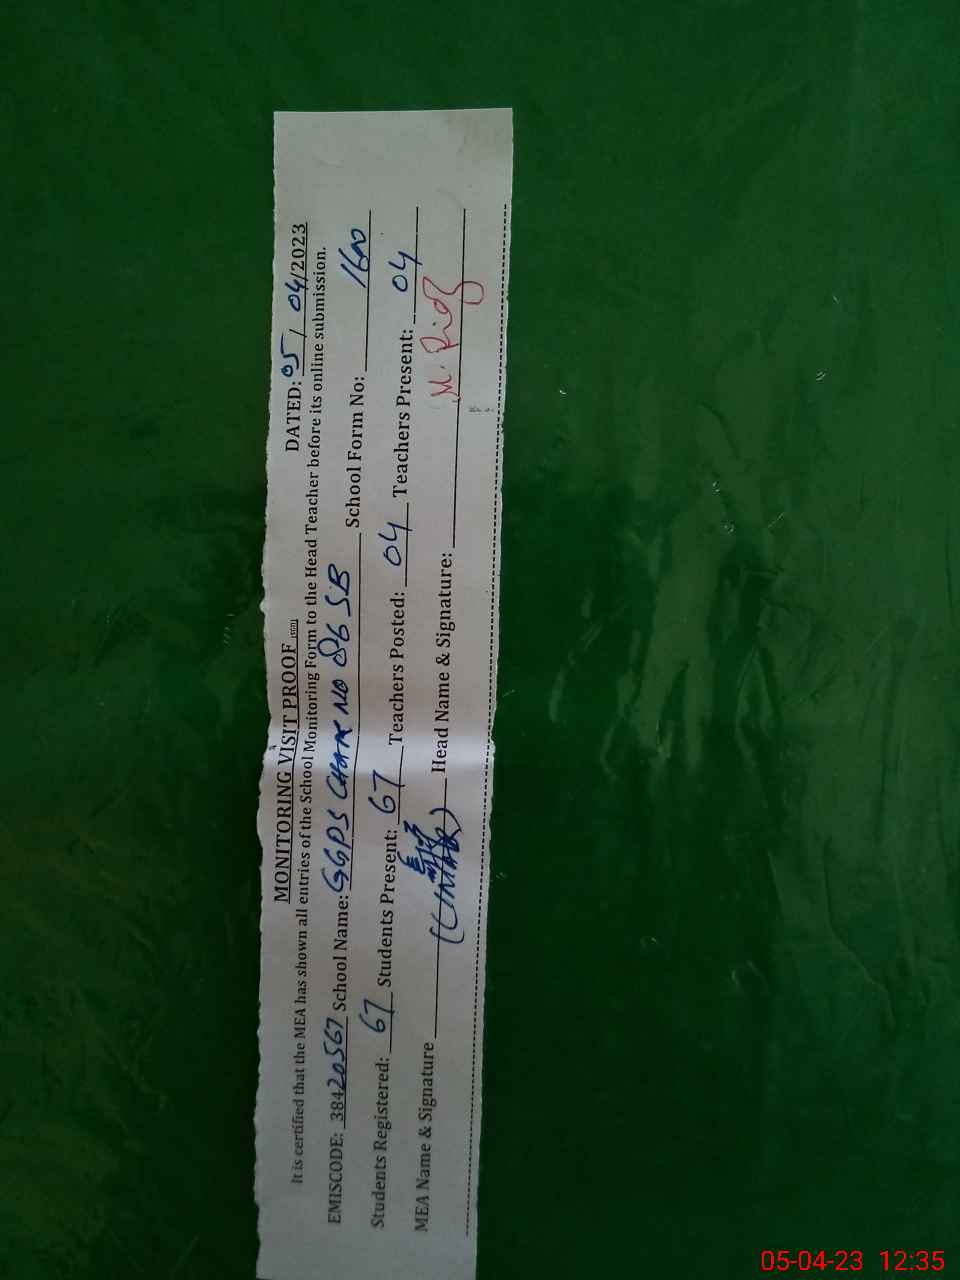 MONITORING VISIT PROOF DATED: 05/04/2023
It is certified that the MEA has shown all entries of the School Monitoring Form to the Head Teacher before its online submission.
EMISCODE: 38420567 School Name: GGPS CHAK NO 86 SB School Form No: 1600
Students Registered: 67 Students Present: 67 Teachers Posted: 04 Teachers Present: 04
MEA Name & Signature (UMAR) Head Name & Signature: M. Riaz
05-04-23 12:35